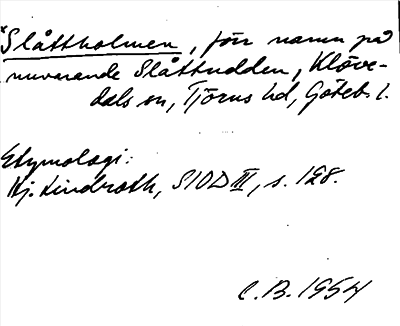 *Slåttholmen, förr namn på
nuvarande Slåttudden, Klöve-
dals sn, Tjörns hd, Göteb. l.
Etymologi:
Hj. Lindroth, SIOD III, s. 128.
C.B. 1954